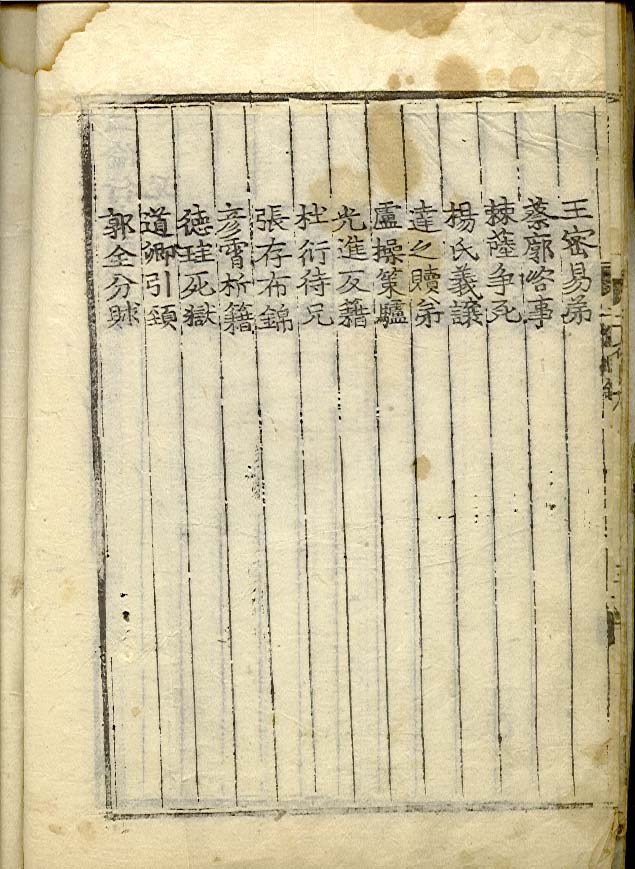 王密易弟
蔡廓咨事
棘薩争死
楊氏義讓
達之贖弟
盧操策驢
光進反籍
杜衍待兄
張存布錦
彦霄析籍
徳珪死獄
道卿引頸
郭全分財